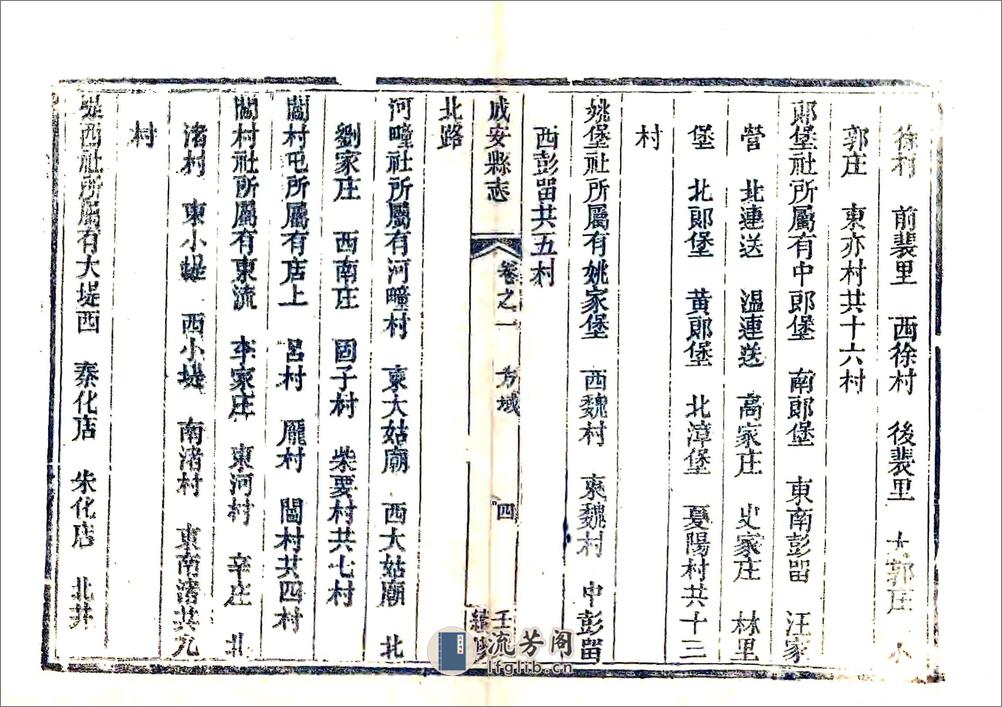 徐村　前裴里　西徐村　後裴里　大郭庄　小
郭庄　東亦村共十六村
郎堡社所屬有中郎堡　南郎堡　東南彭畱　汪家
營　北連送　溫連送　高家庄　史家庄　林里
堡　北郎堡　黄郎堡　北漳堡　夏陽村共十三
村
姚堡社所屬有姚家堡　西魏村　東魏村　中彭畱
西彭畱共五村
成安縣志　卷之一　方域　四　王　續修
北路
河疃社所屬有河疃村　東大姑廟　西大姑廟　北
劉家庄　西南庄　固子村　柴要村共七村
閻村屯所屬有店上　呂村　龐村　閻村共四村
閻村社所屬有東流　李家庄　東河村　辛庄　北
渚村　東小堤　西小堤　南渚村　東南渚共九
村
堤西社所屬有大堤西　秦化店　朱化店　北井
流芳阁
lfglib.cn